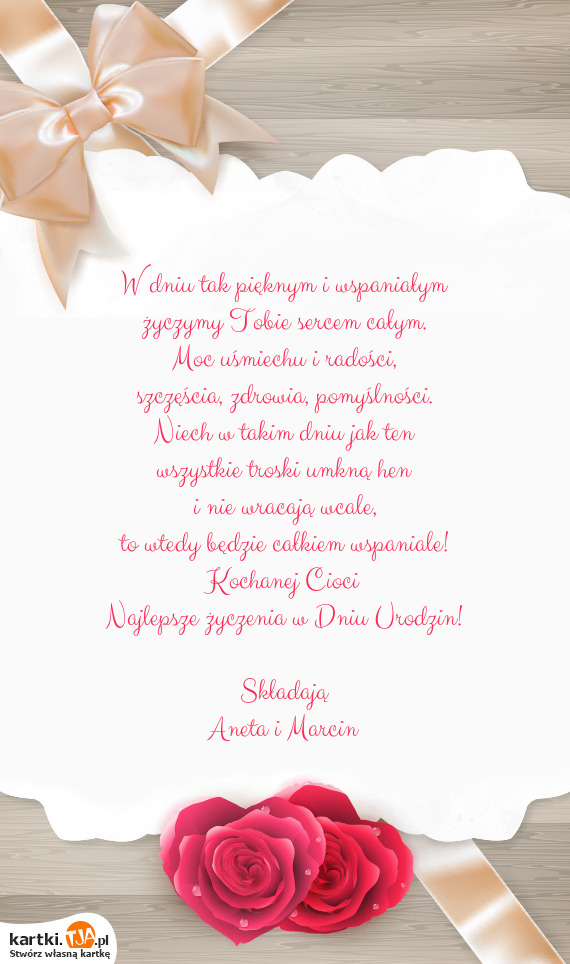 W dniu tak pięknym i wspaniałym
życzymy Tobie sercem całym.
Moc uśmiechu i radości,
szczęścia, zdrowia, pomyślności.
Niech w takim dniu jak ten
wszystkie troski umkną hen
i nie wracają wcale,
to wtedy będzie całkiem wspaniale!
Kochanej Cioci
Najlepsze życzenia w Dniu Urodzin!
Składają
Aneta i Marcin
kartki.TJA.pl
Stwórz własną kartkę